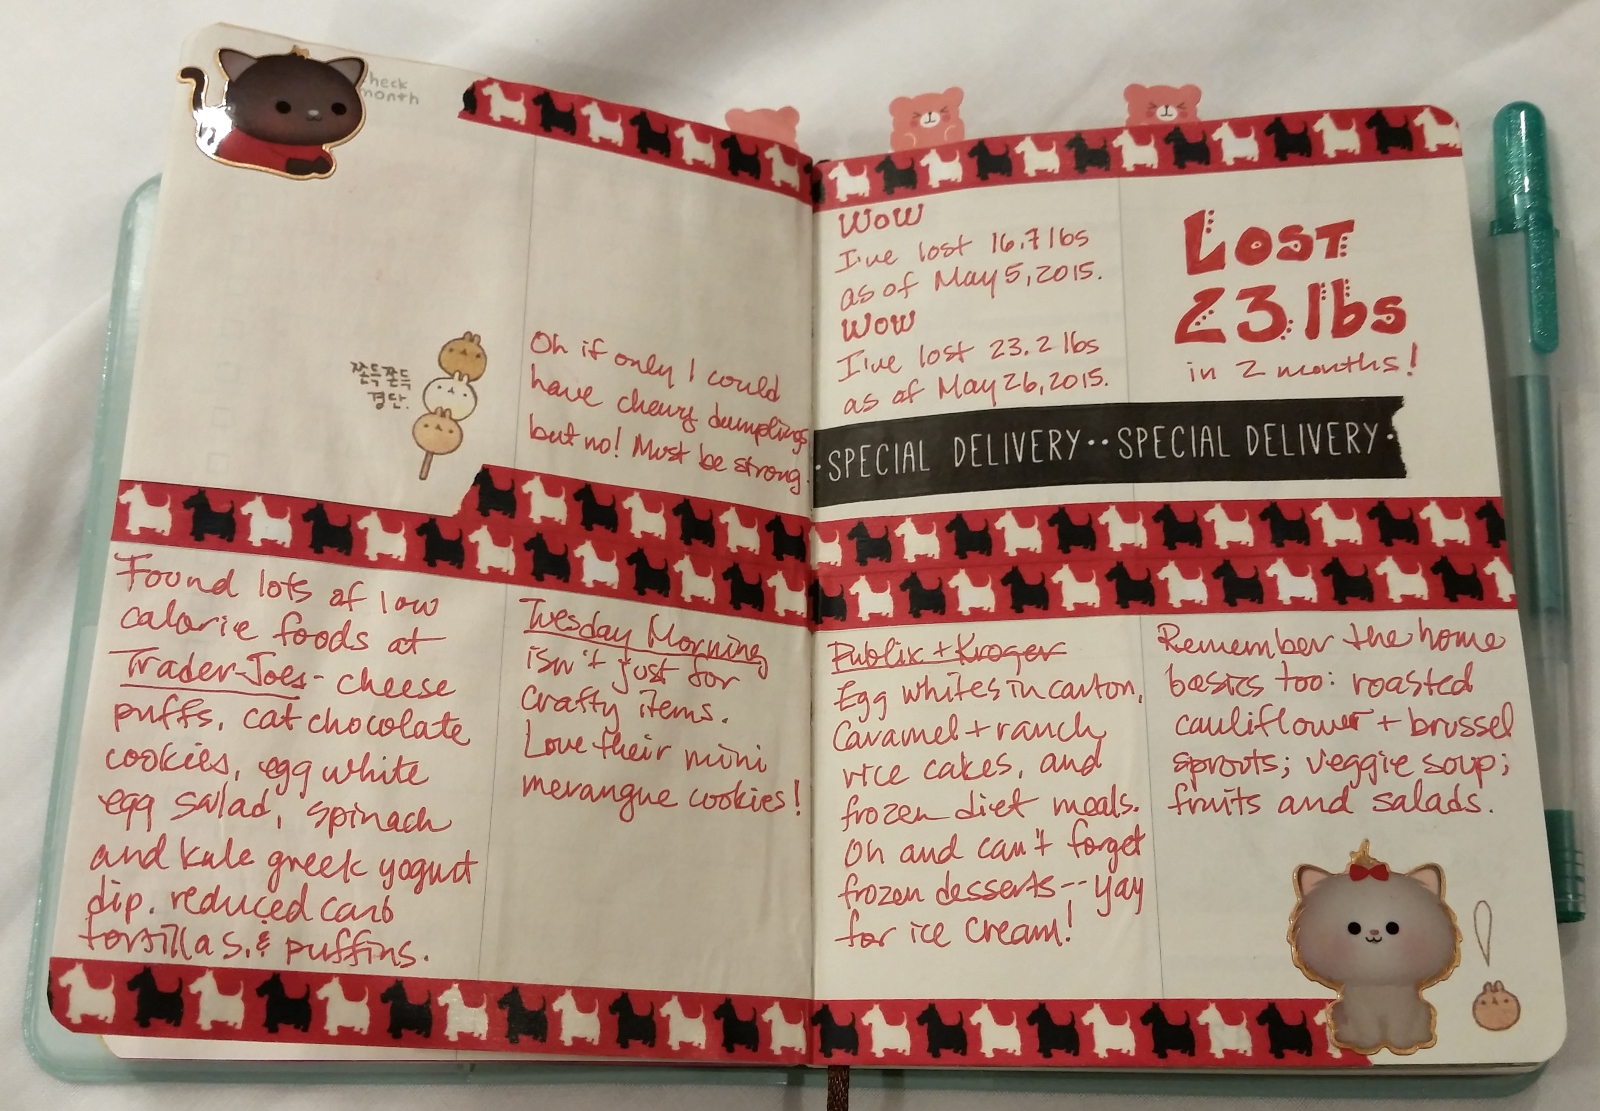 heck
month
쫀득쫀득
경단.
Oh if only I could
have chewy dumplings
but no! Must be strong.
Wow
I've lost 16.7 lbs
as of May 5, 2015.
Wow
I've lost 23.2 lbs
as of May 26, 2015.
Lost
23 lbs
in 2 months!
·SPECIAL DELIVERY··SPECIAL DELIVERY·
Found lots of low
calorie foods at
Trader Joes - cheese
puffs, cat chocolate
cookies, egg white
egg salad, spinach
and kale greek yogurt
dip. reduced carb
tortillas, & puffins.
Tuesday Morning
isn't just for
crafty items.
Love their mini
merangue cookies!
Publix + Kroger
Egg whites in carton,
Caramel + ranch
rice cakes, and
frozen diet meals.
Oh and can't forget
frozen desserts -- yay
for ice cream!
Remember the home
basics too: roasted
cauliflower + brussel
sprouts; veggie soup;
fruits and salads.